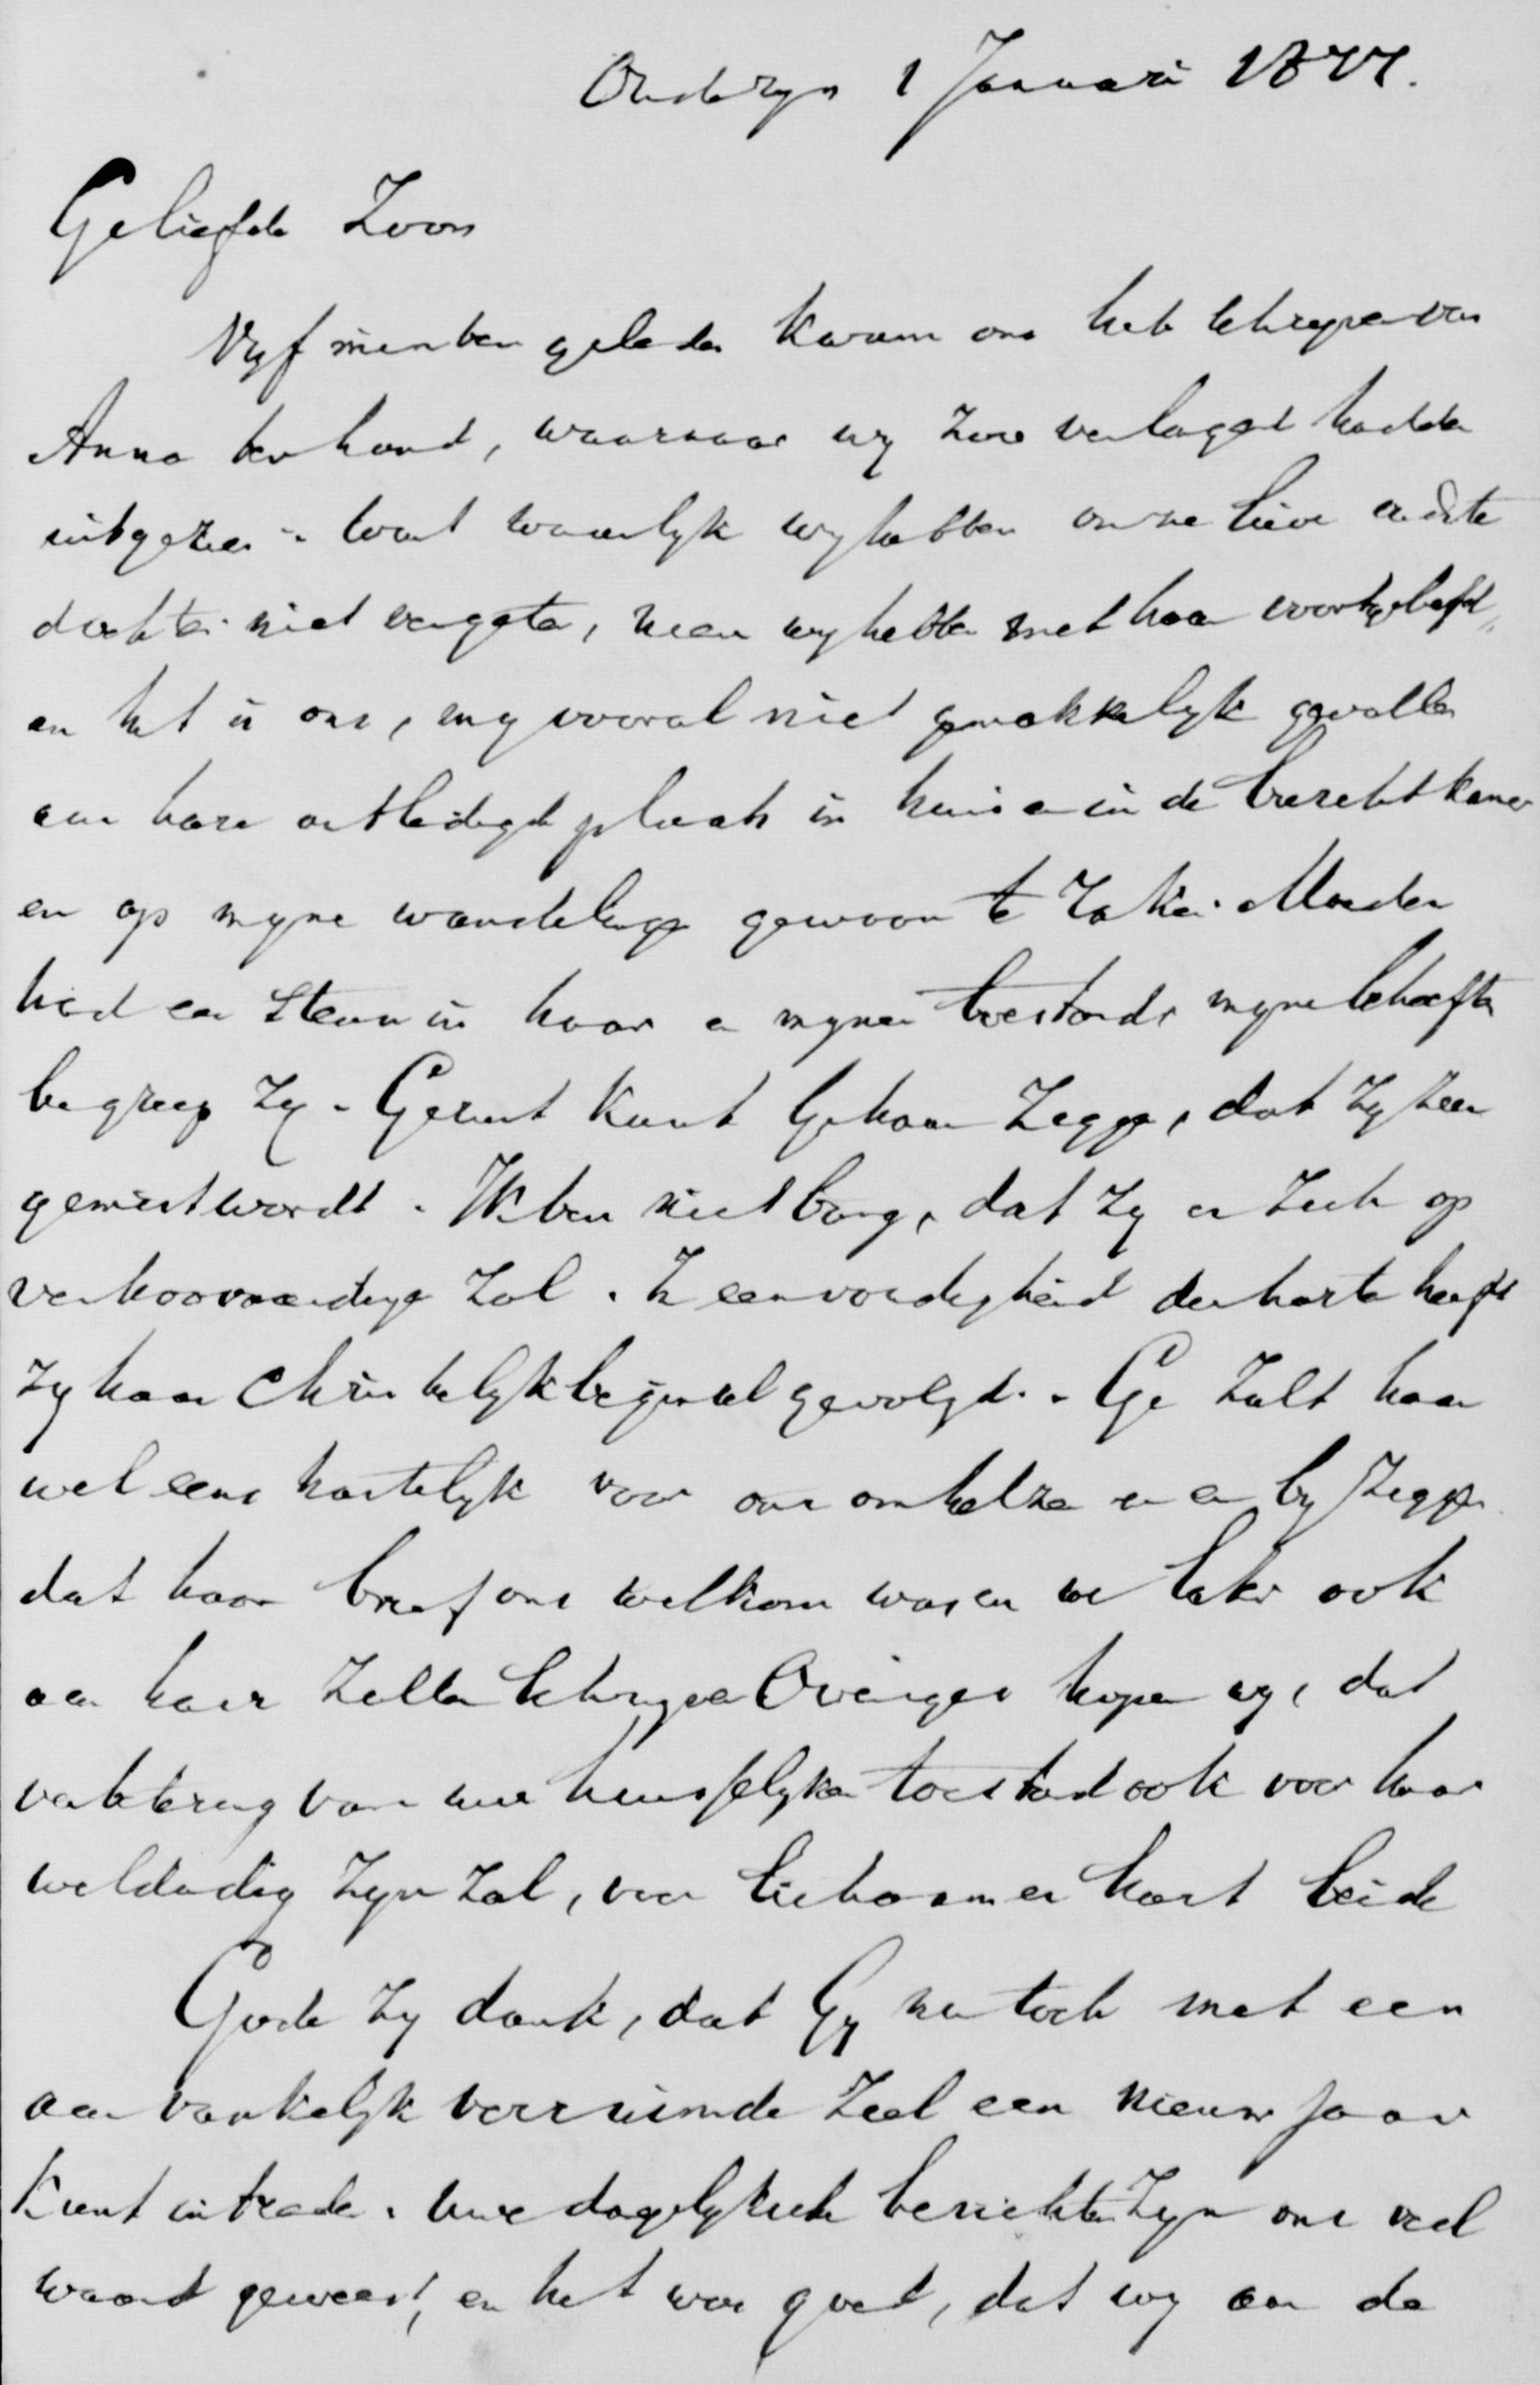 Ouderyn 1 Januari 1877.
Geliefde Zoon
Vyf minuten geleden kwam ons het schrijven van
Anna ter hand, waarnaar wy zeer verlangd hadden
uitgezien. want waarlyk wy hebben onze lieve oudste
dochter niet vergeten, neen wy hebben met haar voortgeleefd,
en het is ons, my vooral niet gemakkelyk gevallen
aan hare ontledigde plaats in huis en in de kamer
en op myne wandelingen gewoon te raken. Moeder
had een steun in haar en mynen toestand myne behoeften
begreep zy. Gerust kunt Ge haar zeggen, dat zy zeer
gemist wordt. Ik ben niet bang, dat zy er zich op
verhoovaardigen zal. In eenvoudigheid des harten heeft
zy haar Christelyk beginsel gevolgd. Ge zult haar
wel eens hartelyk voor ons omhelzen en er by zeggen
dat haar brief ons welkom was en we later ook
aan haar zullen schryven Overigens hopen wy, dat
verbetering van uwe huisselyken toestand ook voor haar
weldadig zyn zal, voor lichaam en hart beide
Gode zy dank, dat Gy nu toch met een
aanvankelyk verruimde ziel een nieuw jaar
kunt intreden. Uwe dagelyksche berichten zyn ons veel
waard geweest, en het was goed, dat wy aan de